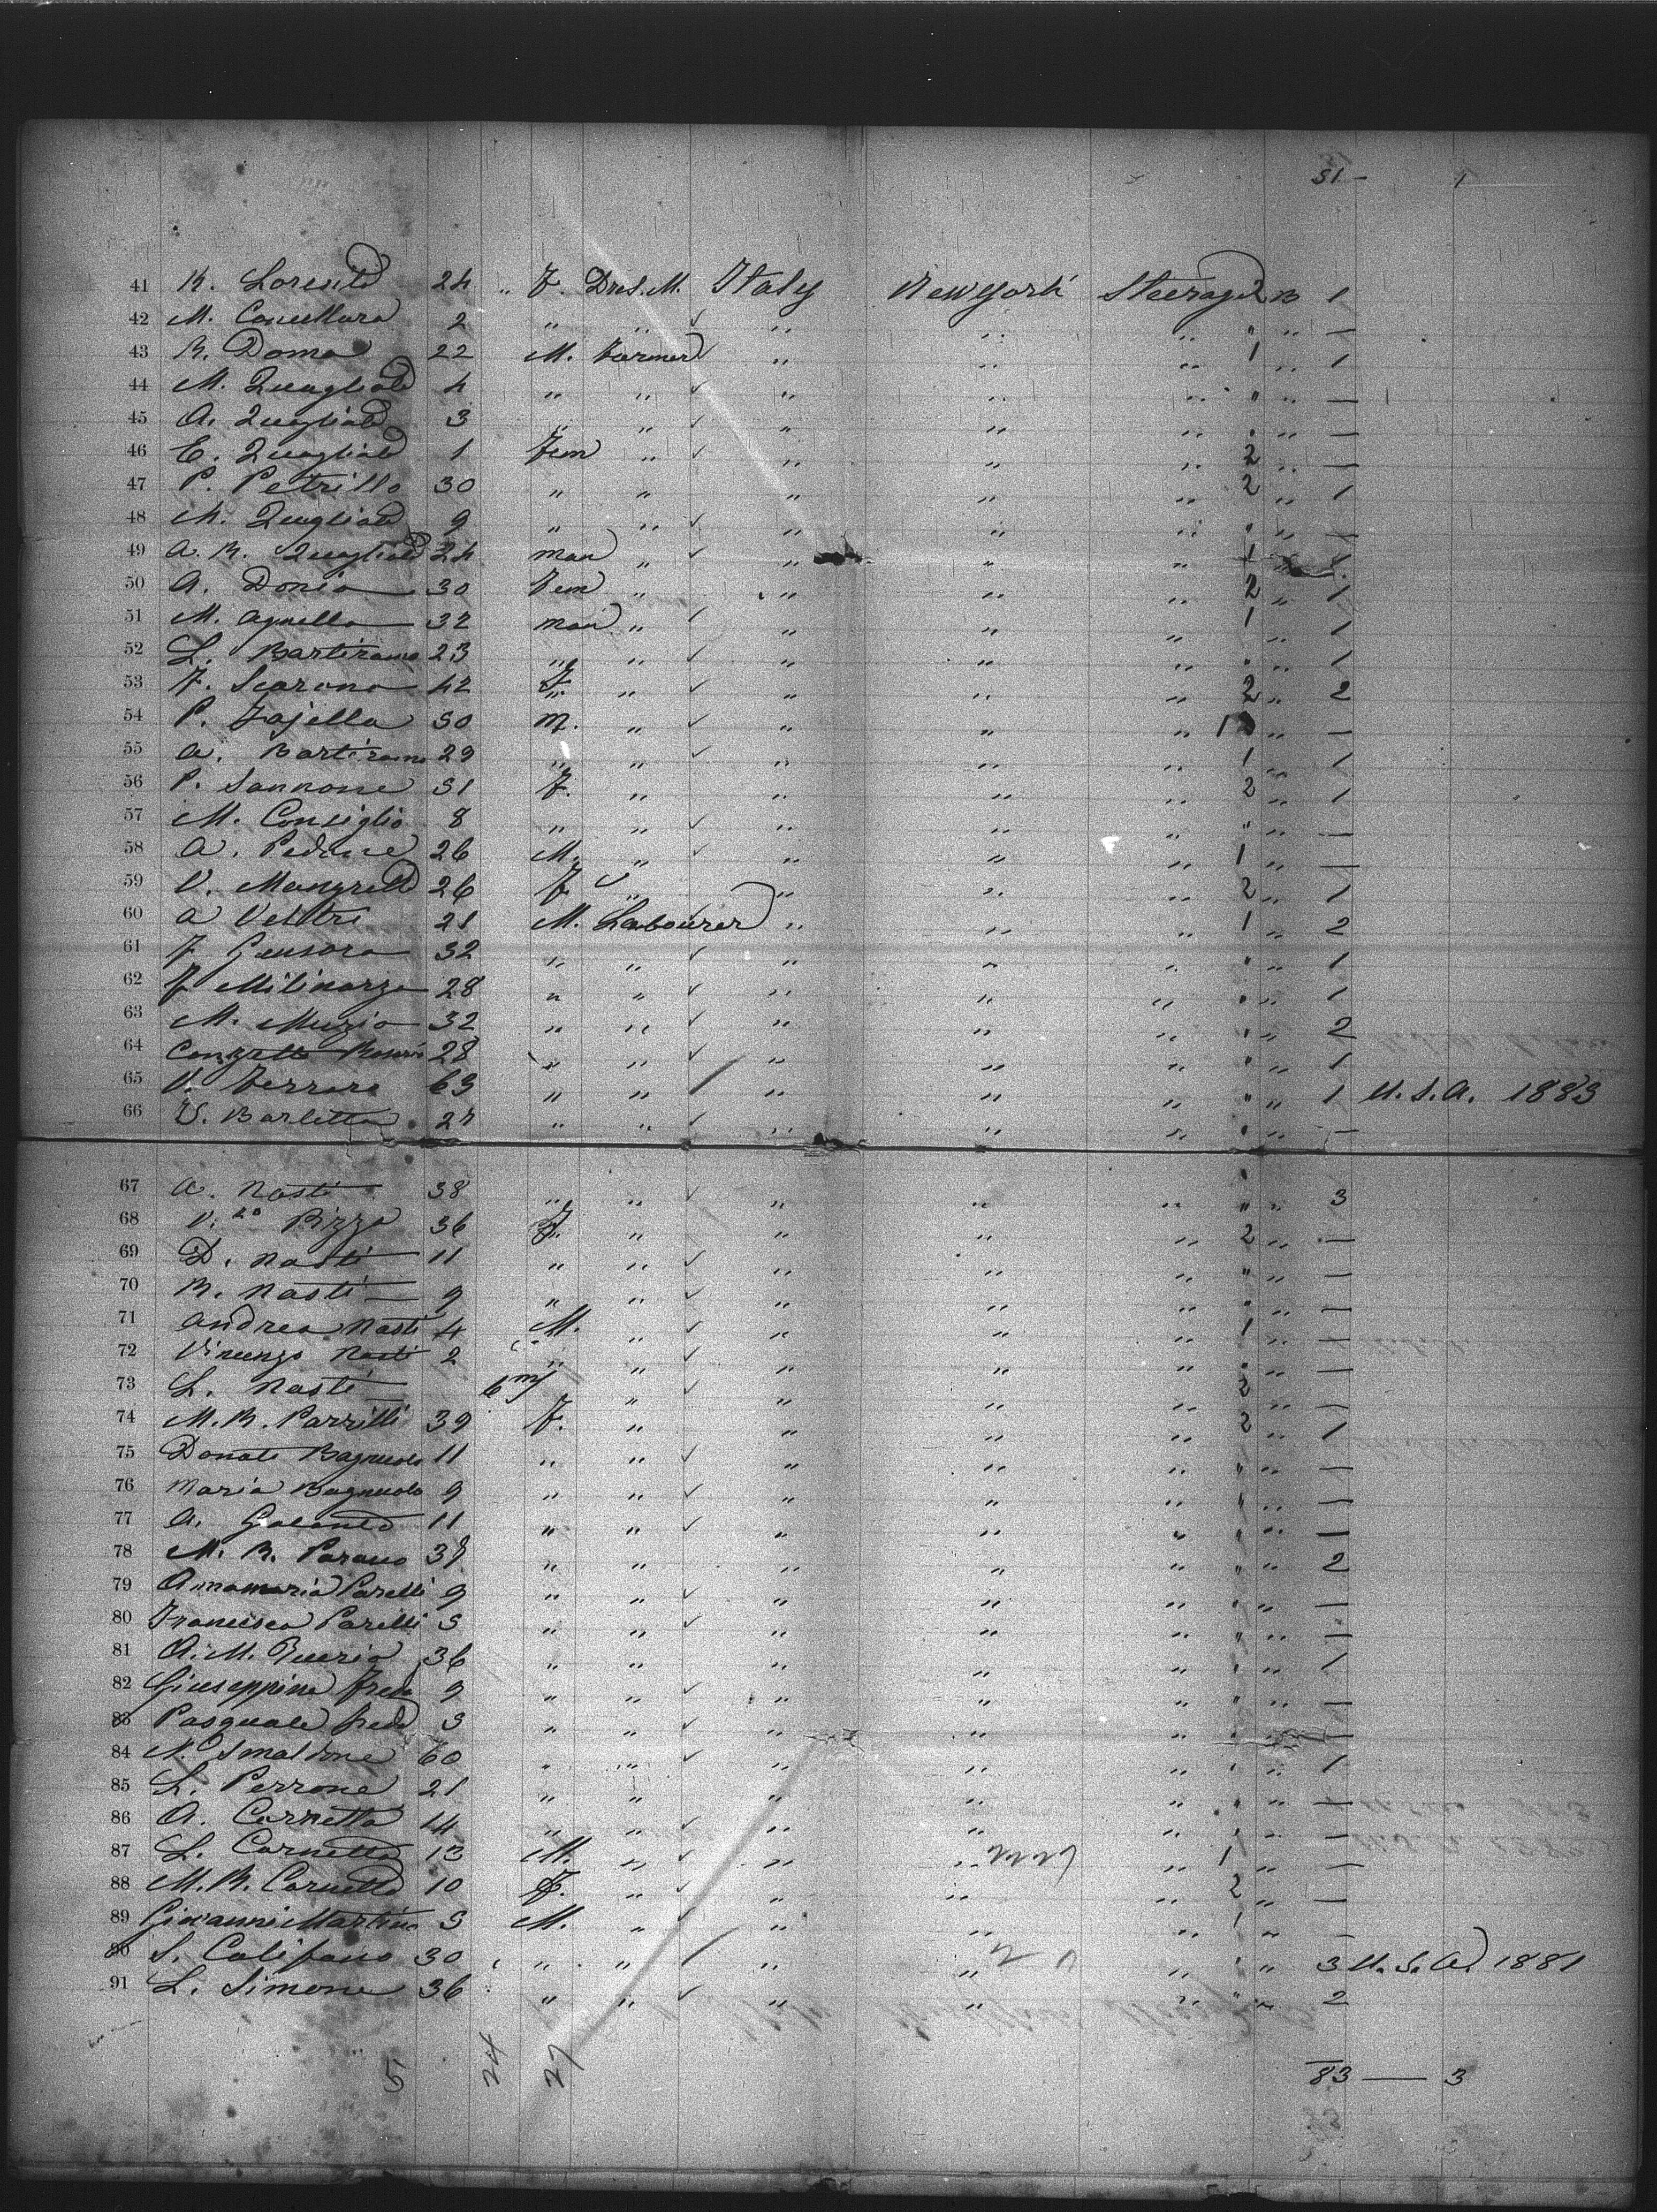 31 — 1
41 R. Lorenzo 24 " F. Dres. M. Italy New York Steerage 2 B 1
42 M. Cancellara 2 " " " " " " " —
43 R. Doma 22 M. Farmer " " " 1 " 1
44 M. Quagliato 4 " " " " " " " —
45 A. Quagliato 3 " " " " " " " —
46 E. Quagliato 1 Fem " " " " 2 " —
47 P. Petrillo 30 " " " " " 2 " 1
48 M. Quagliato 9 " " " " " " " —
49 A. R. Quagliato 24 man " " " " 1 " 1
50 A. Donia 30 Fem " " " " 2 " 1
51 M. Agnello 32 man " " " " 1 " 1
52 L. Bartiromo 23 " " " " " " " 1
53 F. Scarano 42 F. " " " " 2 " 2
54 P. Fajella 30 M. " " " " 1 " —
55 A. Bartiromo 29 " " " " " 1 " 1
56 P. Sannone 31 F. " " " " 2 " 1
57 M. Consiglio 8 " " " " " " " —
58 A. 26 M. " " " " 1 " —
59 V. 26 F " " " " 2 " 1
60 A Veltri 21 M. Labourer " " " 1 " 2
61 F 32 " " " " " " " 1
62 F 28 " " " " " " " 1
63 M. Muzio 32 " " " " " " " 2
64 28 " " " " " " " 1
65 V. Ferrara 63 " " " " " " " 1 U.S.A. 1883
66 V. Barletta 27 " " " " " " " —
67 A. Nasti 38 " " " " " " " 3
68 V. Pizza 36 F. " " " " 2 " —
69 D. Nasti 11 " " " " " " " —
70 R. Nasti 9 " " " " " " " —
71 Andrea Nasti 4 M. " " " " 1 " —
72 Vincenzo Nasti 2 " " " " " " " —
73 L. Nasti 6 m/ " " " " 2 " —
74 M. R. Parrilli 39 F. " " " " 2 " 1
75 Donata Bagnuolo 11 " " " " " " " —
76 Maria Bagnuolo 9 " " " " " " " —
77 A. 11 " " " " " " " —
78 M. R. Parano 37 " " " " " " " 2
79 Annamaria Parelli 9 " " " " " " " —
80 Francesca Parelli 3 " " " " " " " —
81 A. M. 36 " " " " " " " 1
82 Giuseppina 9 " " " " " " " —
83 Pasquale 3 " " " " " " " —
84 N. Smaldone 60 " " " " " " " 1
85 L. Perrone 21 " " " " " " " —
86 A. Cornetta 14 " " " " " " " —
87 L. Cornetta 13 M. " " " " 1 " —
88 M. R. Cornetta 10 F. " " " " 2 " —
89 Giovanni Martino 3 M. " " " " 1 " —
90 S. Califano 30 " " " " " " " 3 U.S.A. 1881
91 L. Simone 36 " " " " " " " 2
5 24 27
83 — 3